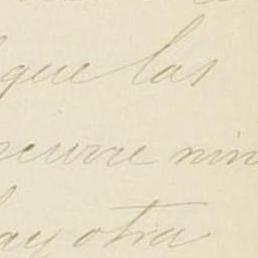 que las
ocurre nin
hay otra